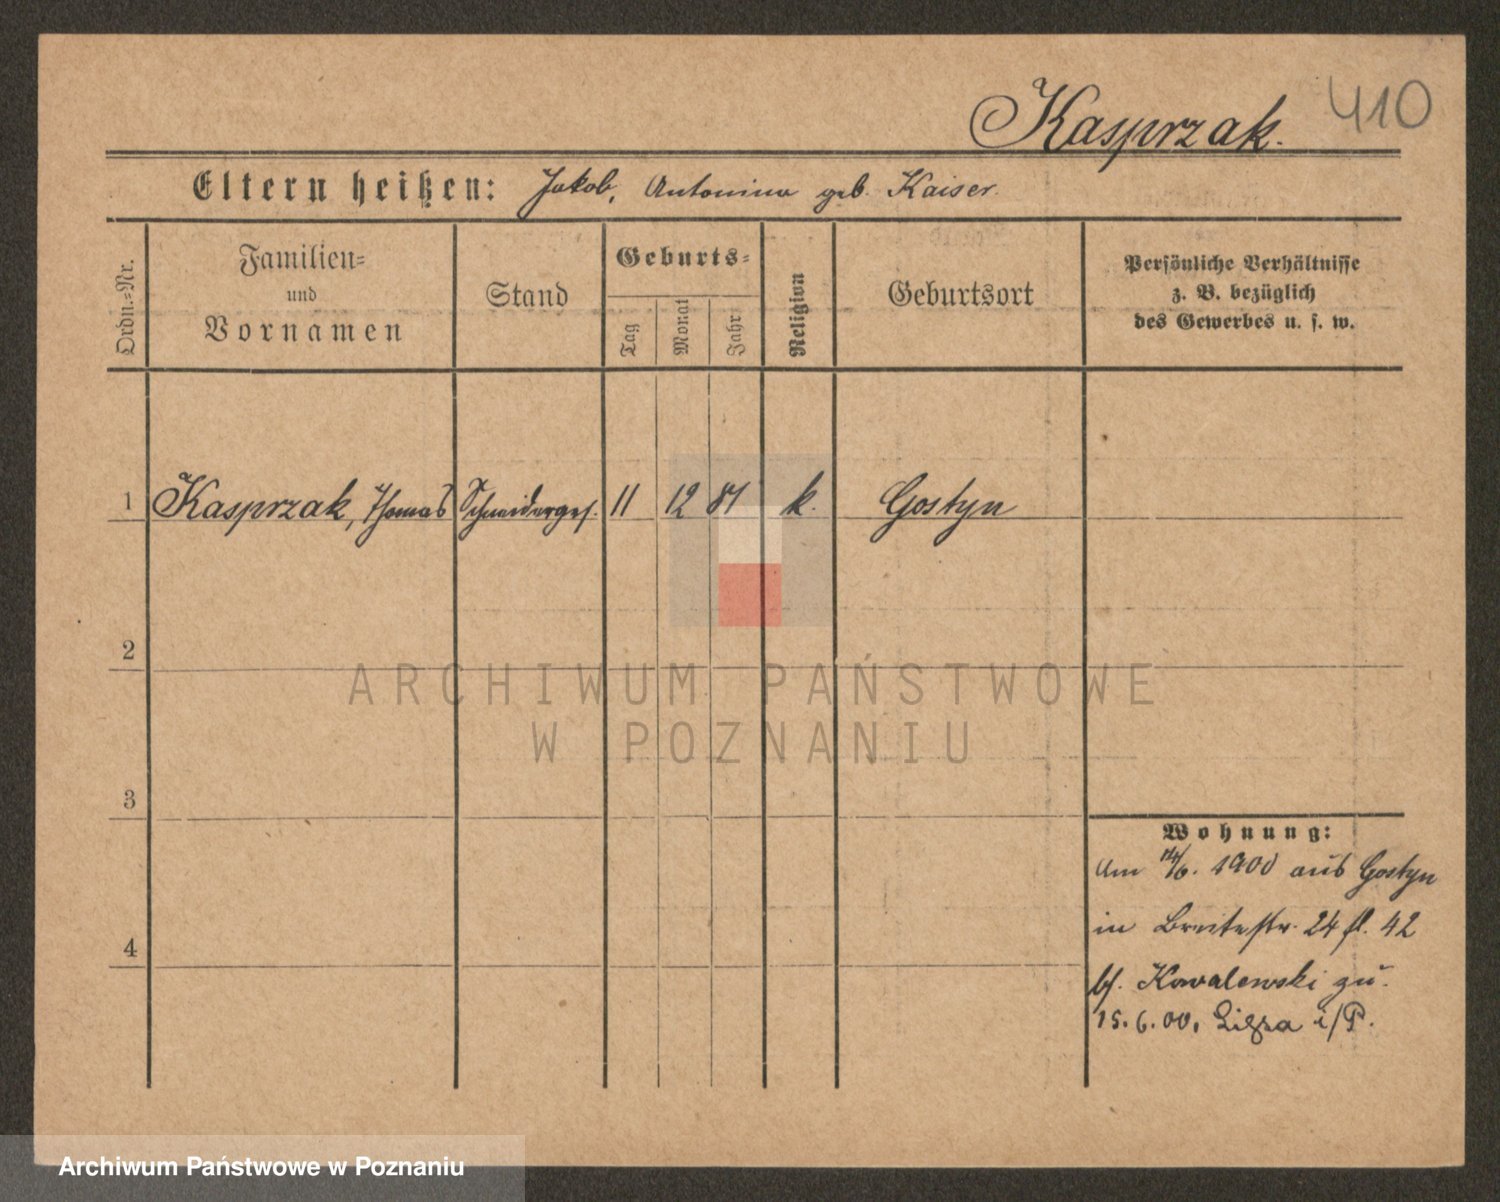 Kasprzak. 410
Eltern heißen: Jakob, Antonina geb. Kaiser.
Ordn.=Nr.
Familien=
und
Vornamen
Stand
Geburts=
Tag
Monat
Jahr
Religion
Geburtsort
Persönliche Verhältnisse
z. B. bezüglich
des Gewerbes u. s. w.
1 Kasprzak, Thomas Schneiderges. 11 12 81 k. Gostyn
2
ARCHIWUM PAŃSTWOWE
W POZNANIU
3
4
Wohnung:
Am 14/6. 1900 aus Gostyn
in Breitestr. 24 42
bf. Kowalewski zu.
15.6.00. Lissa i/P.
Archiwum Państwowe w Poznaniu